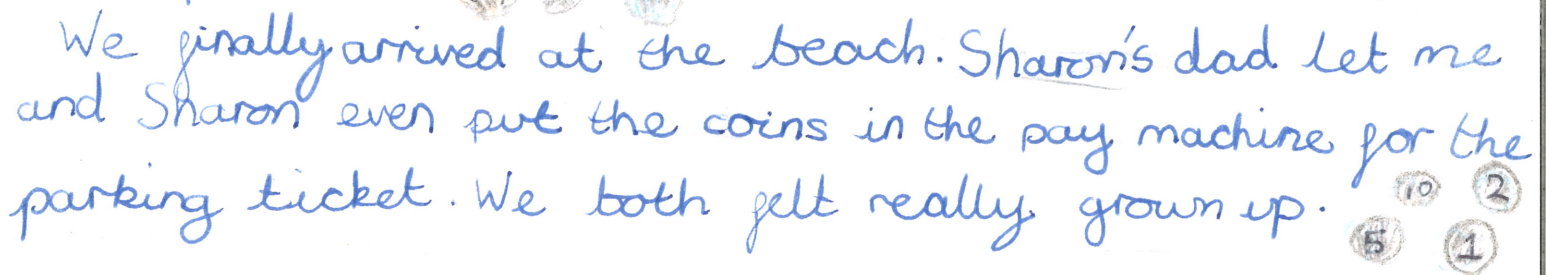 We finally arrived at the beach. Sharon's dad let me
and Sharon even put the coins in the pay machine for the
parking ticket. We both felt really grown up.
10 2
5 1